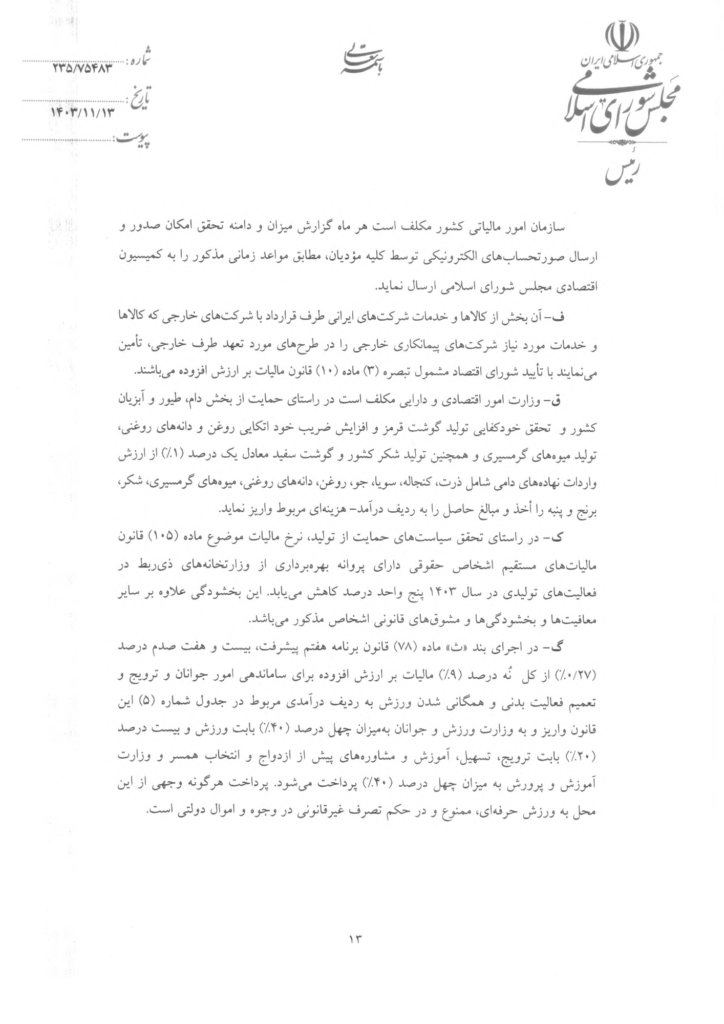 جمهوری اسلامی ایران
مجلس شورای اسلامی
رئیس
باسمه تعالی
شماره: ۲۳۵/۷۵۴۸۳
تاریخ: ۱۴۰۳/۱۱/۱۳
پیوست:
سازمان امور مالیاتی کشور مکلف است هر ماه گزارش میزان و دامنه تحقق امکان صدور و
ارسال صورتحساب‌های الکترونیکی توسط کلیه مؤدیان، مطابق مواعد زمانی مذکور را به کمیسیون
اقتصادی مجلس شورای اسلامی ارسال نماید.
ف- آن بخش از کالاها و خدمات شرکت‌های ایرانی طرف قرارداد با شرکت‌های خارجی که کالاها
و خدمات مورد نیاز شرکت‌های پیمانکاری خارجی را در طرح‌های مورد تعهد طرف خارجی، تأمین
می‌نمایند با تأیید شورای اقتصاد مشمول تبصره (۳) ماده (۱۰) قانون مالیات بر ارزش افزوده می‌باشند.
ق- وزارت امور اقتصادی و دارایی مکلف است در راستای حمایت از بخش دام، طیور و آبزیان
کشور و تحقق خودکفایی تولید گوشت قرمز و افزایش ضریب خود اتکایی روغن و دانه‌های روغنی،
تولید میوه‌های گرمسیری و همچنین تولید شکر کشور و گوشت سفید معادل یک درصد (۱٪) از ارزش
واردات نهاده‌های دامی شامل ذرت، کنجاله، سویا، جو، روغن، دانه‌های روغنی، میوه‌های گرمسیری، شکر،
برنج و پنبه را أخذ و مبالغ حاصل را به ردیف درآمد- هزینه‌ای مربوط واریز نماید.
ک- در راستای تحقق سیاست‌های حمایت از تولید، نرخ مالیات موضوع ماده (۱۰۵) قانون
مالیات‌های مستقیم اشخاص حقوقی دارای پروانه بهره‌برداری از وزارتخانه‌های ذی‌ربط در
فعالیت‌های تولیدی در سال ۱۴۰۳ پنج واحد درصد کاهش می‌یابد. این بخشودگی علاوه بر سایر
معافیت‌ها و بخشودگی‌ها و مشوق‌های قانونی اشخاص مذکور می‌باشد.
گ- در اجرای بند «ث» ماده (۷۸) قانون برنامه هفتم پیشرفت، بیست و هفت صدم درصد
(۰/۲۷٪) از کل نُه درصد (۹٪) مالیات بر ارزش افزوده برای ساماندهی امور جوانان و ترویج و
تعمیم فعالیت بدنی و همگانی شدن ورزش به ردیف درآمدی مربوط در جدول شماره (۵) این
قانون واریز و به وزارت ورزش و جوانان به‌میزان چهل درصد (۴۰٪) بابت ورزش و بیست درصد
(۲۰٪) بابت ترویج، تسهیل، آموزش و مشاوره‌های پیش از ازدواج و انتخاب همسر و وزارت
آموزش و پرورش به میزان چهل درصد (۴۰٪) پرداخت می‌شود. پرداخت هرگونه وجهی از این
محل به ورزش حرفه‌ای، ممنوع و در حکم تصرف غیرقانونی در وجوه و اموال دولتی است.
۱۳